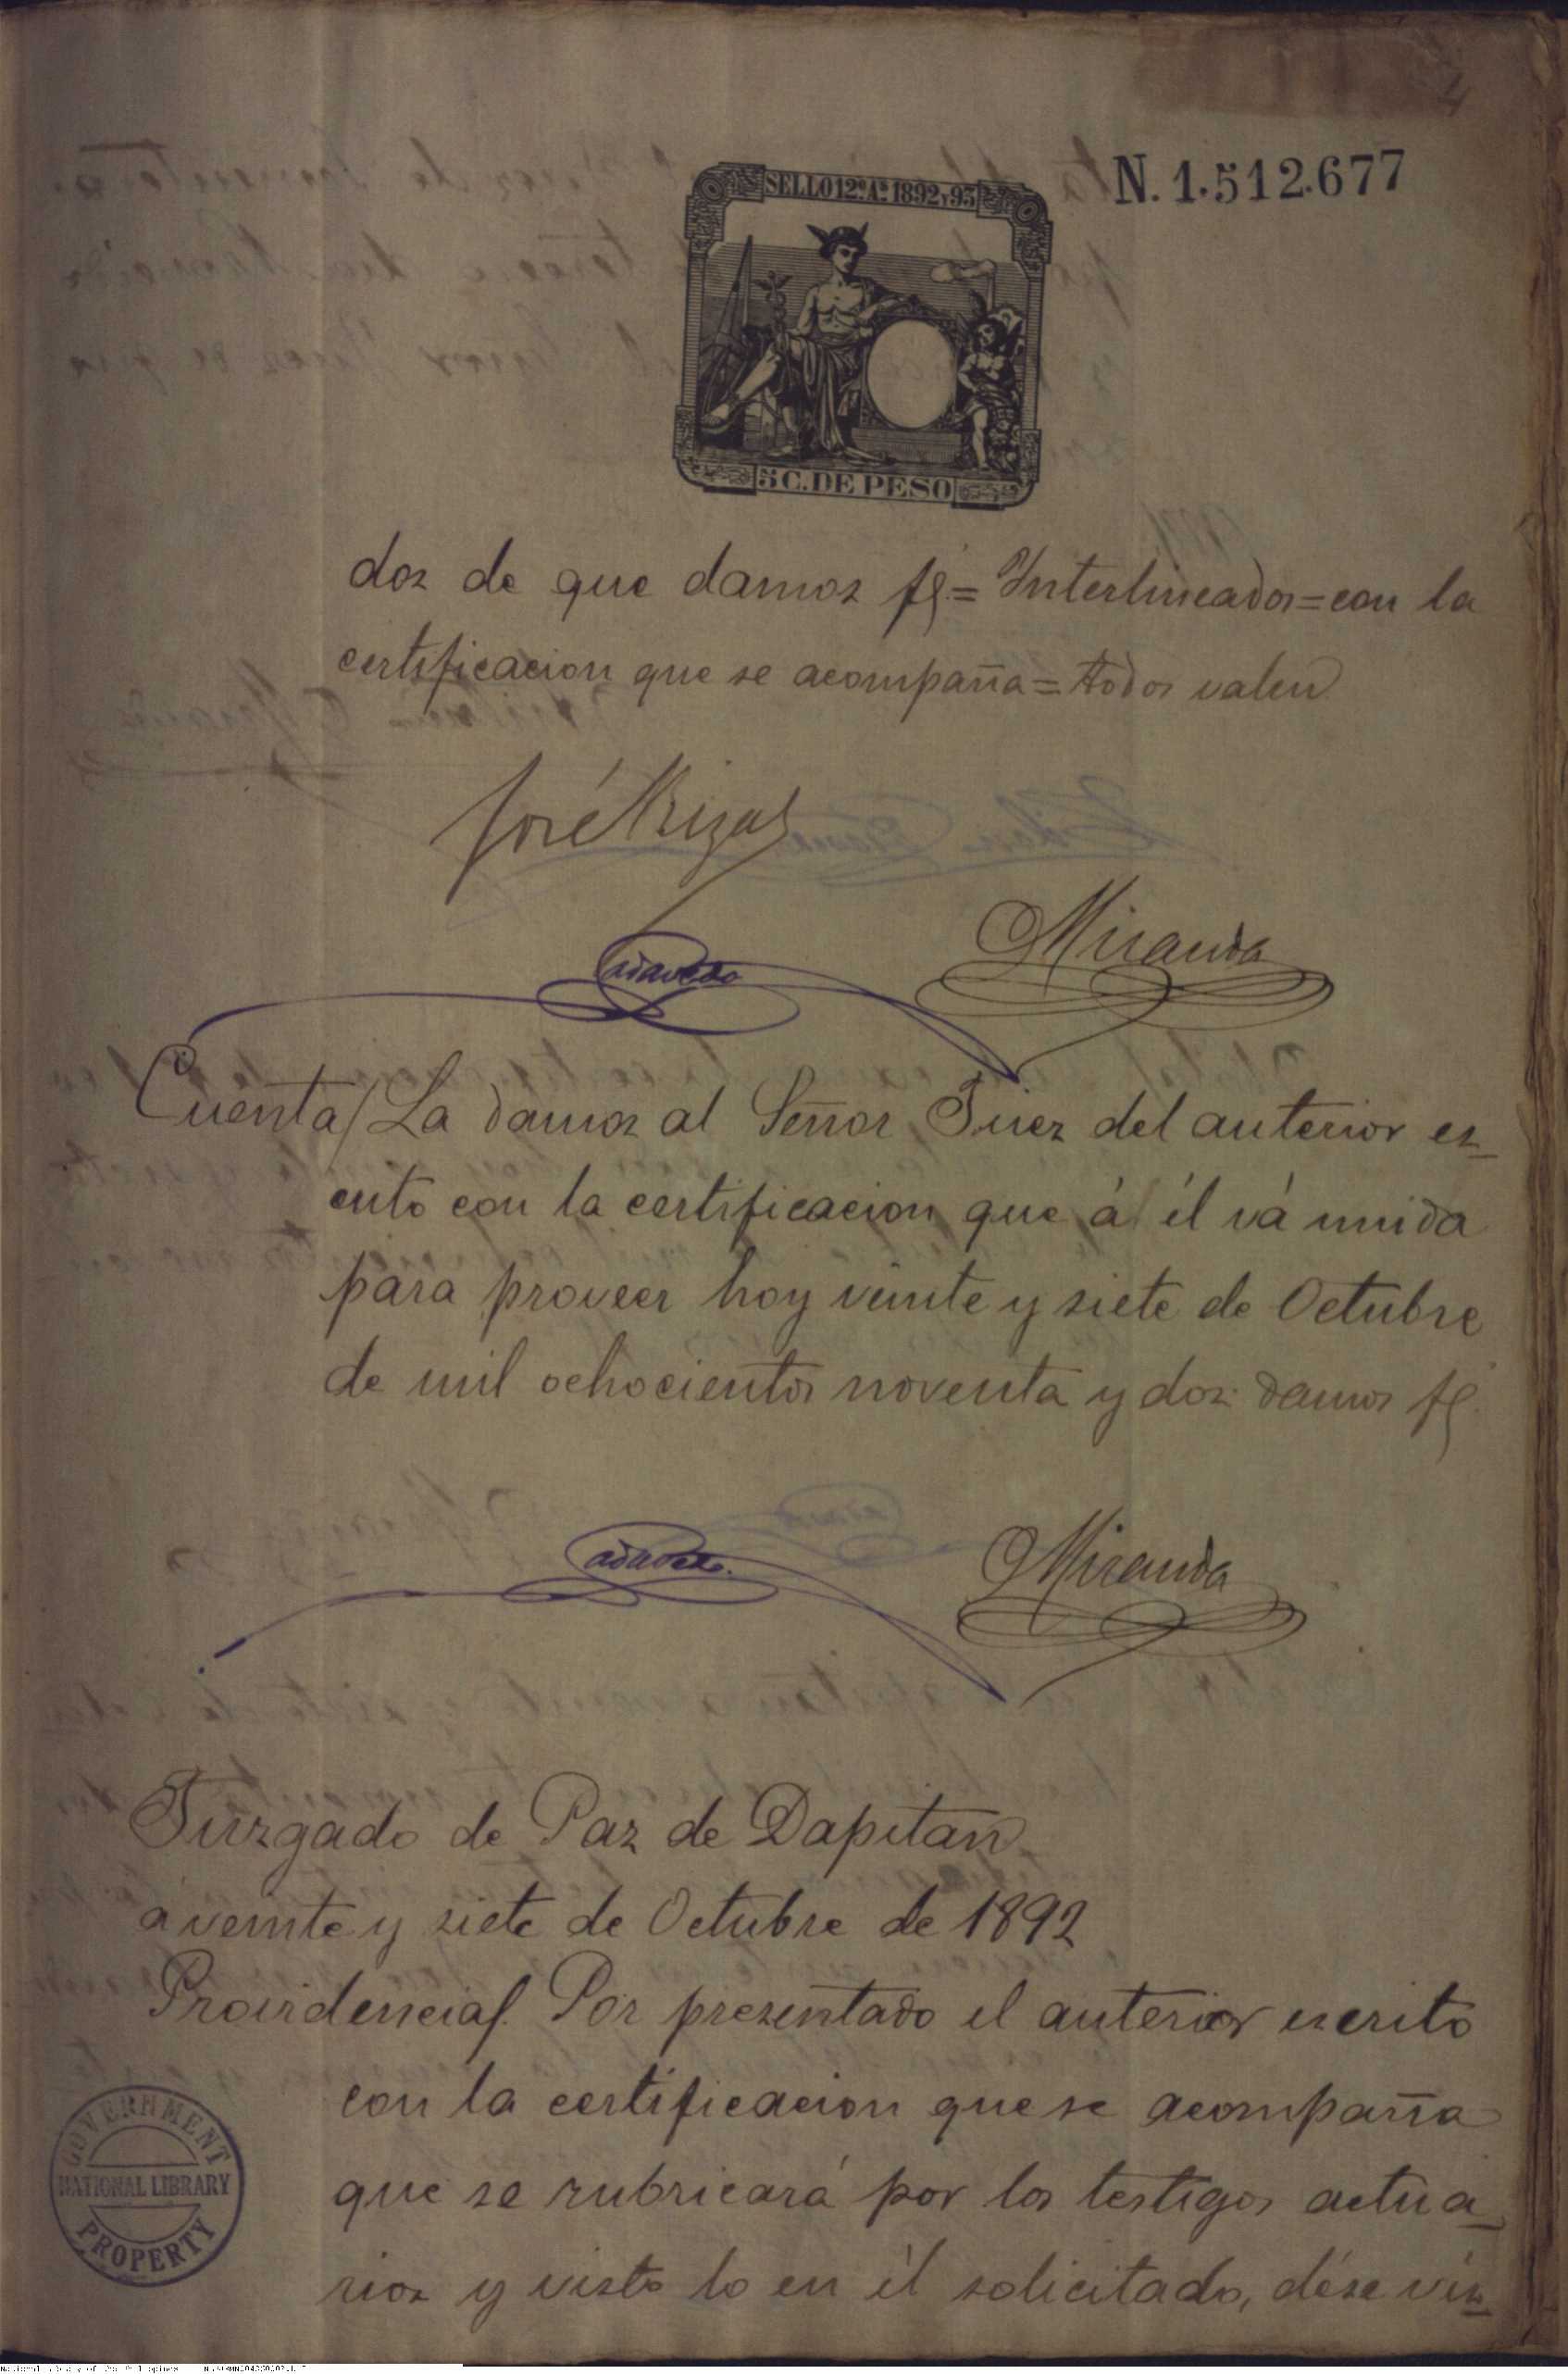 4
N. 1.512.677
SELLO 12.º A.º 1892 Y 93
5 C. DE PESO
dos de que damos fé = Interlineados = con la
certificacion que se acompaña = todos valen
José Rizal
Cadavedo
Miranda
Cuenta/ La damos al Señor Juez del anterior es_
crito con la certificacion que á él vá unida
para proveer hoy veinte y siete de Octubre
de mil ochocientos noventa y dos: damos fé.
Cadavedo.
Miranda
Juzgado de Paz de Dapitan
á veinte y siete de Octubre de 1892
Providencia/. Por presentado el anterior escrito
con la certificacion que se acompaña
que se rubricará por los testigos actua_
rios y visto lo en él solicitado, dése vis_
GOVERNMENT
NATIONAL LIBRARY
PROPERTY